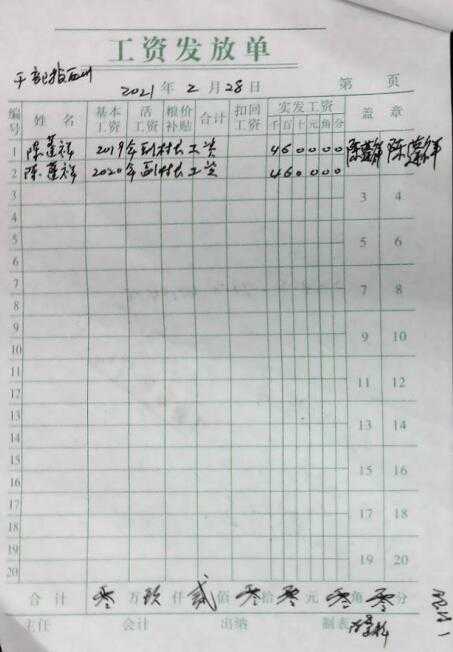 工资发放单
2021 年 2 月 28 日 第 页
编号 姓名 基本工资 活工资 粮价补贴 合计 扣回工资 实发工资 千 百 十 元 角 分 盖章
1 陈莲祥 2019年副村长工资 460000
2 陈莲祥 2020年副村长工资 460000
3 3 4
4
5 5 6
6
7 7 8
8
9 9 10
10
11 11 12
12
13 13 14
14
15 15 16
16
17 17 18
18
19 19 20
20
合计 零万玖仟贰佰零拾零元零角零分
主任 会计 出纳 制表